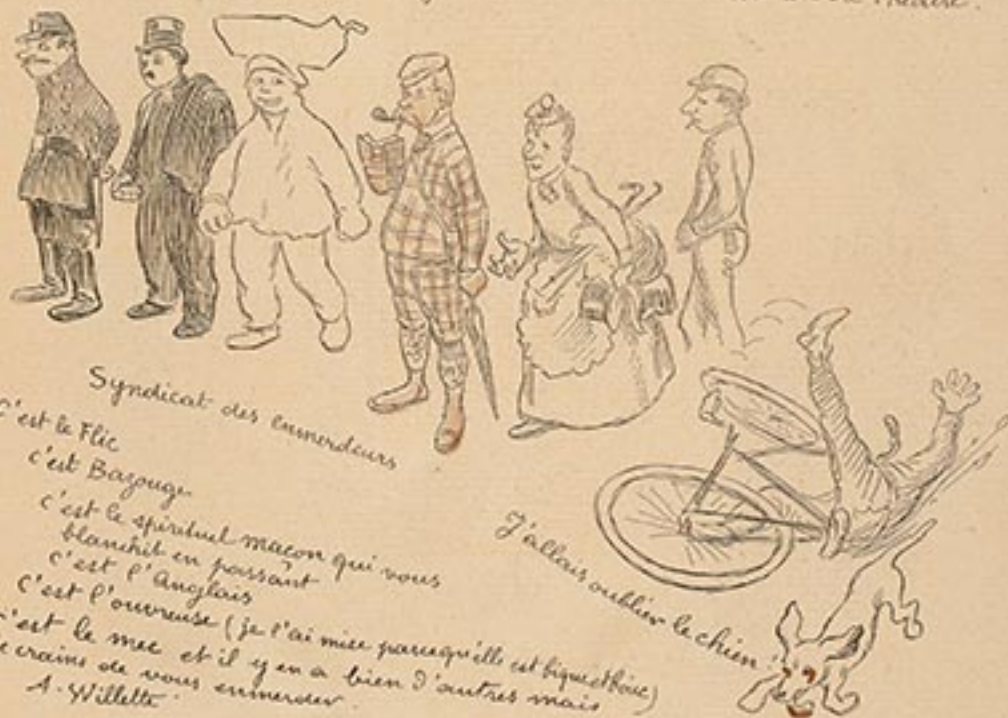 Syndicat des emmerdeurs
C'est le Flic
c'est Bazouge
c'est le spirituel macon qui vous
blanchit en passant
c'est l'Anglais
c'est l'ouvreuse (je l'ai mise parcequ'elle est
c'est le mec et il y en a bien d'autres mais
je crains de vous emmerder.
A. Willette
J'allais oublier le chien!